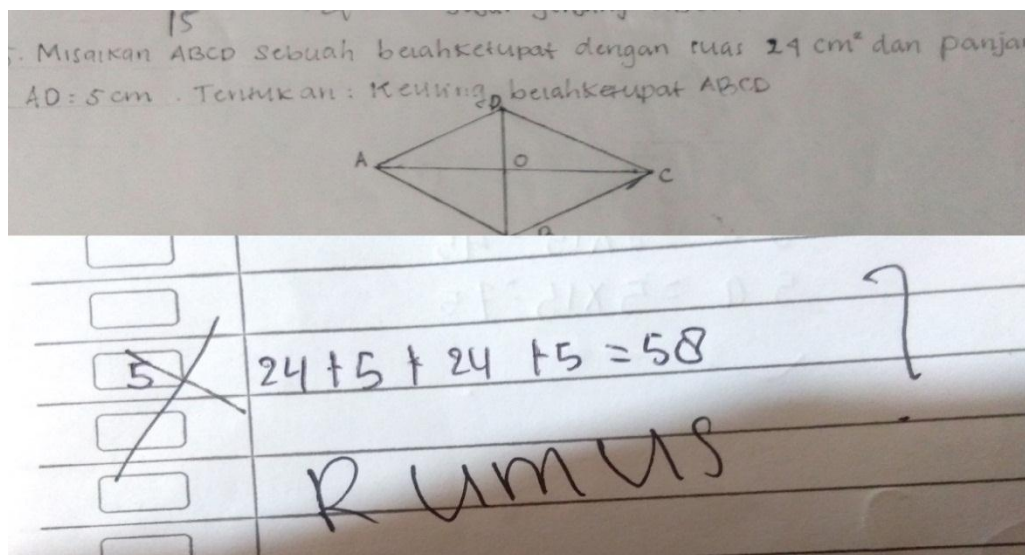 15
. Misalkan ABCD Sebuah belahketupat dengan luas 24 cm² dan panjan
AD : 5 cm . Tentukan : Keliling belahketupat ABCD
D
A
O
C
B
5 24 + 5 + 24 + 5 = 58
?
Rumus